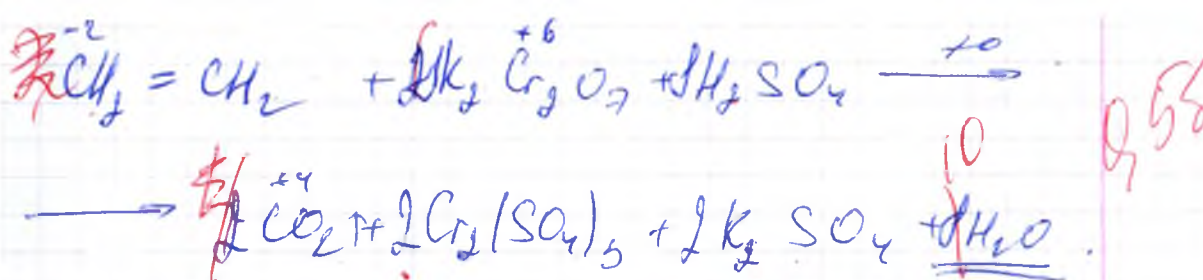 -2 +6
CH₂ = CH₂ + 2K₂Cr₂O₇ + 8H₂SO₄ —t°→
+4 10
→ 2CO₂↑ + 2Cr₂(SO₄)₃ + 2K₂SO₄ + 8H₂O.
0,5б